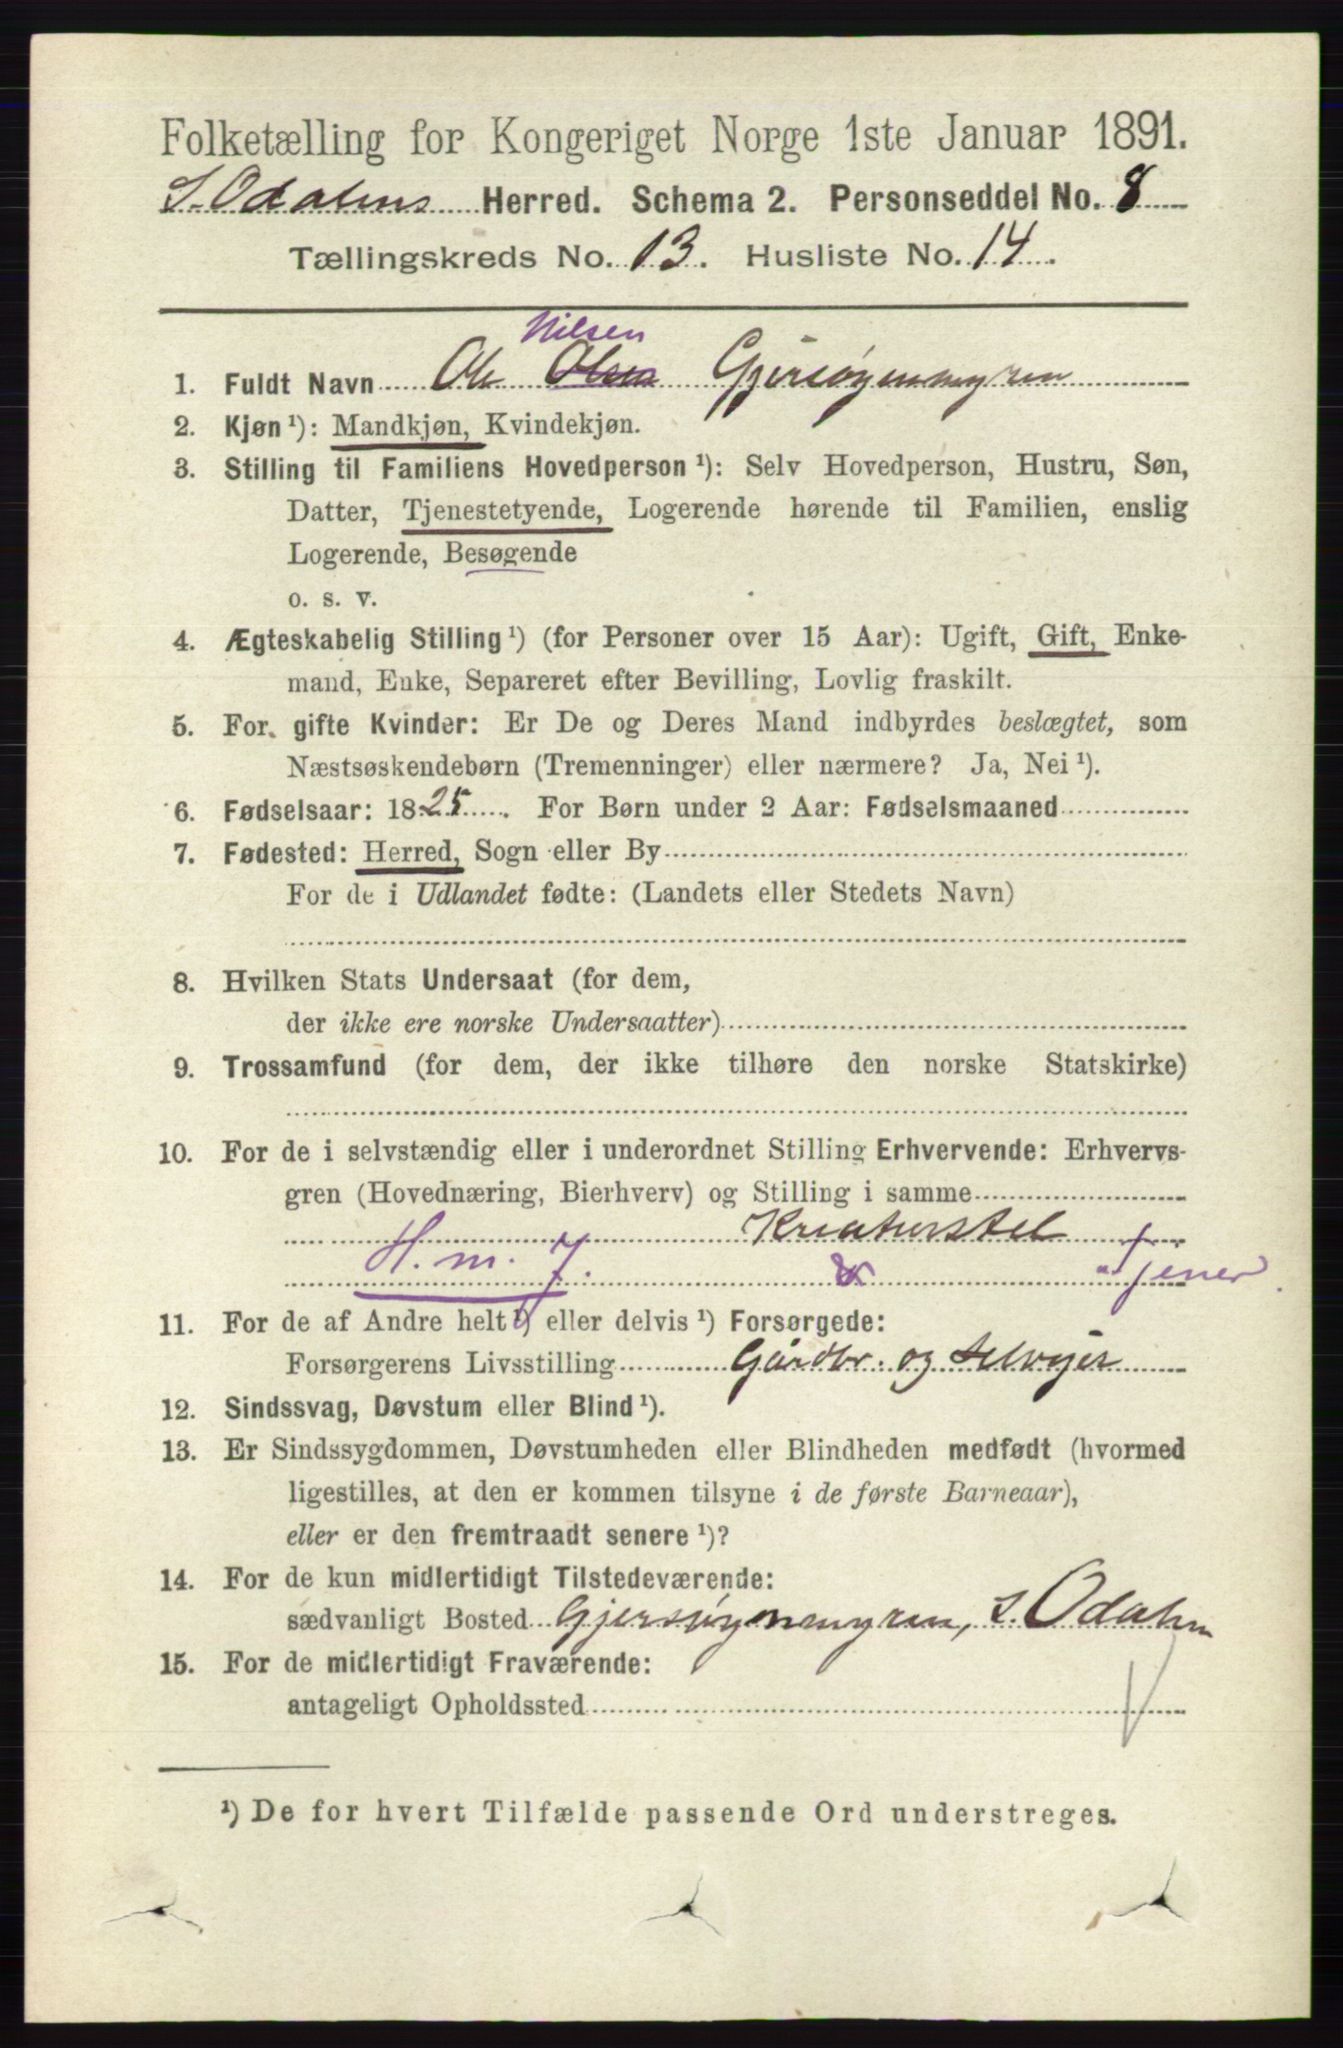 Folketælling for Kongeriget Norge 1ste Januar 1891.
S. Odalens Herred. Schema 2. Personseddel No. 8
Tællingskreds No. 13. Husliste No. 14.
Nilsen
1. Fuldt Navn Ole Olsen Gjersøyenmyren
2. Kjøn ¹): Mandkjøn, Kvindekjøn.
3. Stilling til Familiens Hovedperson ¹): Selv Hovedperson, Hustru, Søn,
Datter, Tjenestetyende, Logerende hørende til Familien, enslig
Logerende, Besøgende
o. s. v.
4. Ægteskabelig Stilling ¹) (for Personer over 15 Aar): Ugift, Gift, Enke-
mand, Enke, Separeret efter Bevilling, Lovlig fraskilt.
5. For gifte Kvinder: Er De og Deres Mand indbyrdes beslægtet, som
Næstsøskendebørn (Tremenninger) eller nærmere? Ja, Nei ¹).
6. Fødselsaar: 1825. For Børn under 2 Aar: Fødselsmaaned
7. Fødested: Herred, Sogn eller By
For de i Udlandet fødte: (Landets eller Stedets Navn)
8. Hvilken Stats Undersaat (for dem,
der ikke ere norske Undersaatter)
9. Trossamfund (for dem, der ikke tilhøre den norske Statskirke)
10. For de i selvstændig eller i underordnet Stilling Erhvervende: Erhvervs-
gren (Hovednæring, Bierhverv) og Stilling i samme
Kreaturstel
H. m. 7. Tjener
11. For de af Andre helt ¹) eller delvis ¹) Forsørgede:
Forsørgerens Livsstilling Gårdbr. og Selveier
12. Sindssvag, Døvstum eller Blind ¹).
13. Er Sindssygdommen, Døvstumheden eller Blindheden medfødt (hvormed
ligestilles, at den er kommen tilsyne i de første Barneaar),
eller er den fremtraadt senere ¹)?
14. For de kun midlertidigt Tilstedeværende:
sædvanligt Bosted Gjersøyenmyren, S. Odalen
15. For de midlertidigt Fraværende:
antageligt Opholdssted
¹) De for hvert Tilfælde passende Ord understreges.